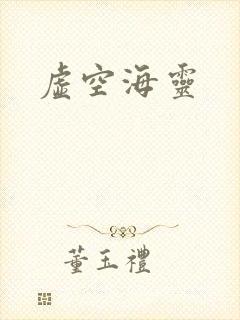 虛空海靈
董玉禮